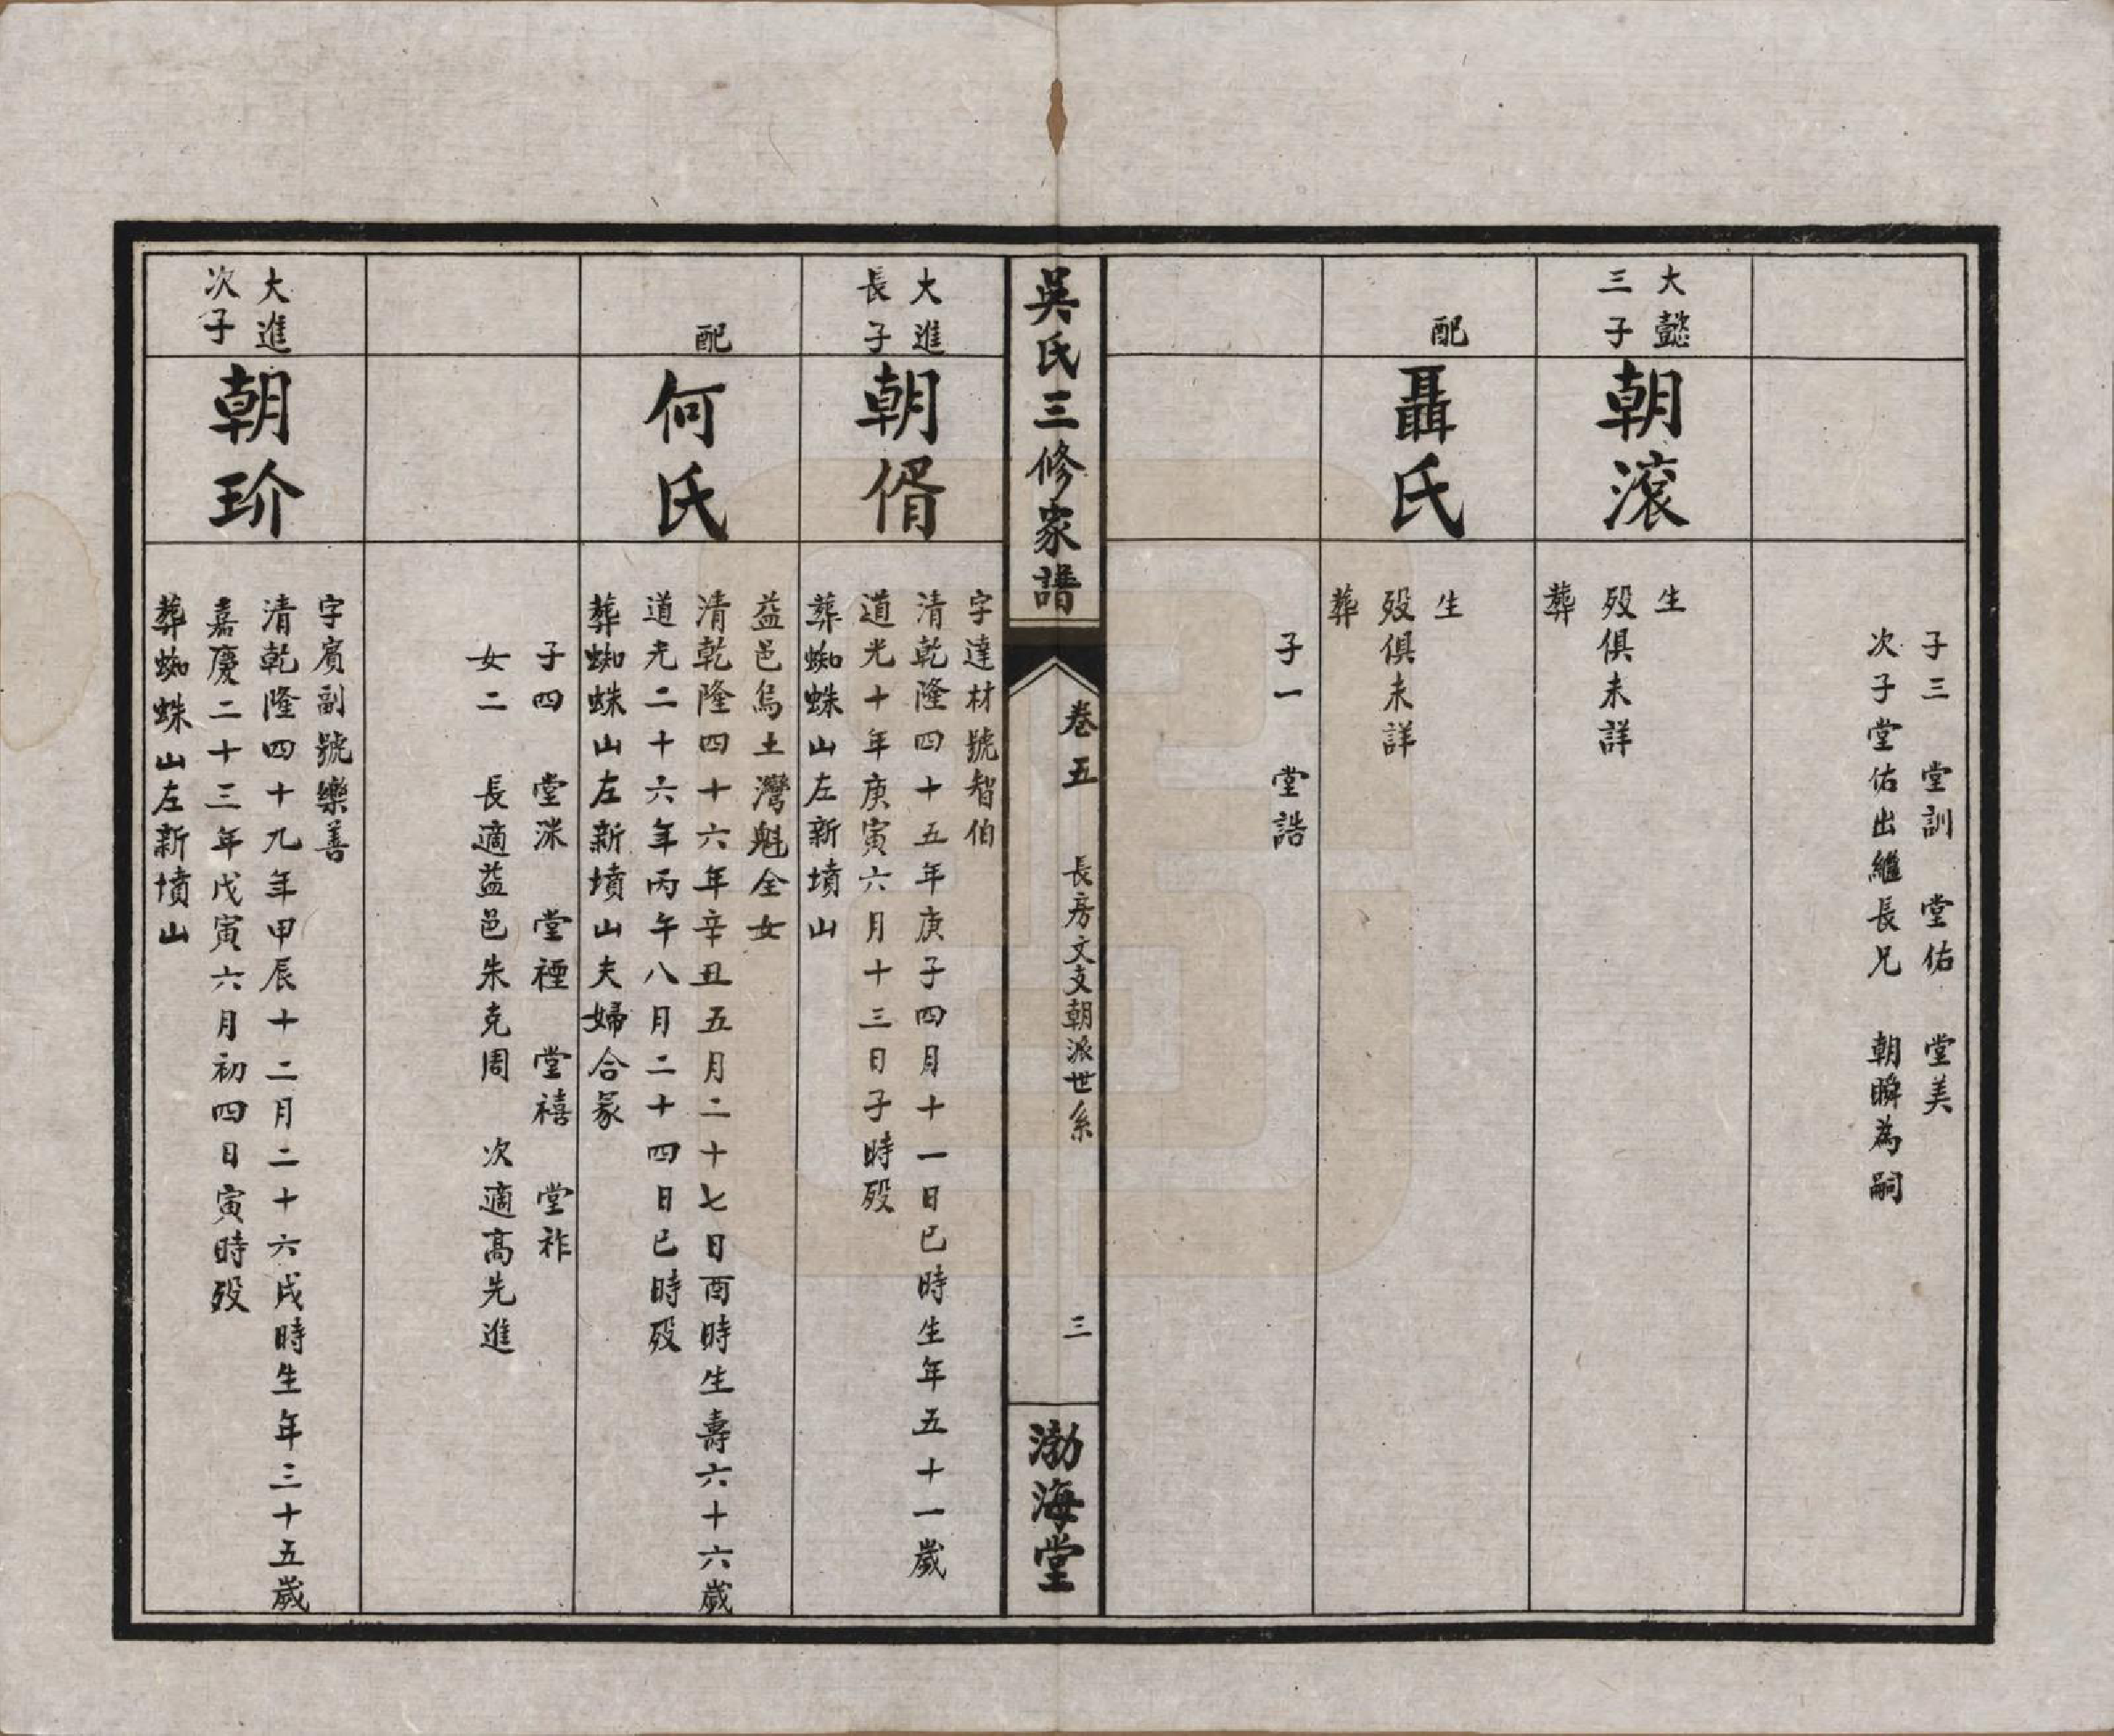 子三 堂訓 堂佑 堂美
次子堂佑出繼長兄 朝瞬為嗣
大懿
三子
朝滾
生
歿俱未詳
葬
配
聶氏
生
歿俱未詳
葬
子一 堂誥
吳氏三修家譜
卷五 長房文支朝派世系 三
渤海堂
大進
長子
朝偦
字達材號智伯
清乾隆四十五年庚子四月十一日巳時生年五十一歲
道光十年庚寅六月十三日子時歿
葬蜘蛛山左新墳山
配
何氏
益邑烏土灣魁全女
清乾隆四十六年辛丑五月二十七日酉時生壽六十六歲
道光二十六年丙午八月二十四日巳時歿
葬蜘蛛山左新墳山夫婦合冢
子四 堂洣 堂禋 堂禧 堂祚
女二 長適益邑朱克周 次適高先進
大進
次子
朝玠
字賓副號樂善
清乾隆四十九年甲辰十二月二十六戌時生年三十五歲
嘉慶二十三年戊寅六月初四日寅時歿
葬蜘蛛山左新墳山